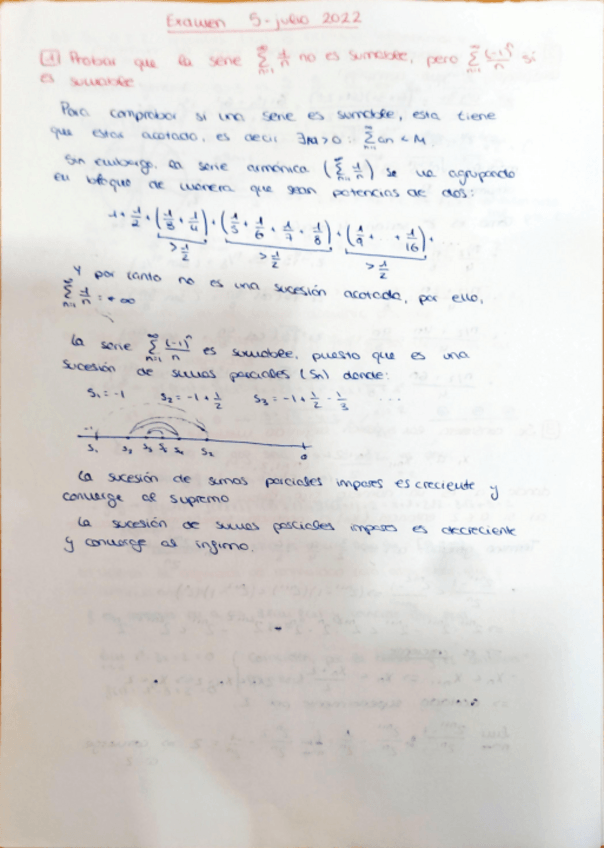 Examen 5-julio 2022
1 Probar que la serie ∑_{n=1}^{∞} 1/n no es sumable, pero ∑_{n=1}^{∞} (-1)^n/n si
es sumable
Para comprobar si una serie es sumable, esta tiene
que estar acotada, es decir ∃M>0 : ∑_{n=1}^{∞} an < M.
Sin embargo, la serie armónica (∑_{n=1}^{∞} 1/n) se va agrupando
en bloque de manera que sean potencias de dos:
1 + 1/2 + (1/3 + 1/4) + (1/5 + 1/6 + 1/7 + 1/8) + (1/9 + .. + 1/16) +
>1/2 >1/2 >1/2
Y por tanto no es una sucesión acotada, por ello,
∑_{n=1}^{∞} 1/n = +∞
La serie ∑_{n=1}^{∞} (-1)^n/n es sumable, puesto que es una
sucesión de sumas parciales (Sn) donde:
S1 = -1 S2 = -1 + 1/2 S3 = -1 + 1/2 - 1/3 ...
-1
S1 S3 S2 0
La sucesión de sumas parciales impares es creciente y
converge al supremo
La sucesión de sumas parciales impares es decreciente
y converge al ínfimo.